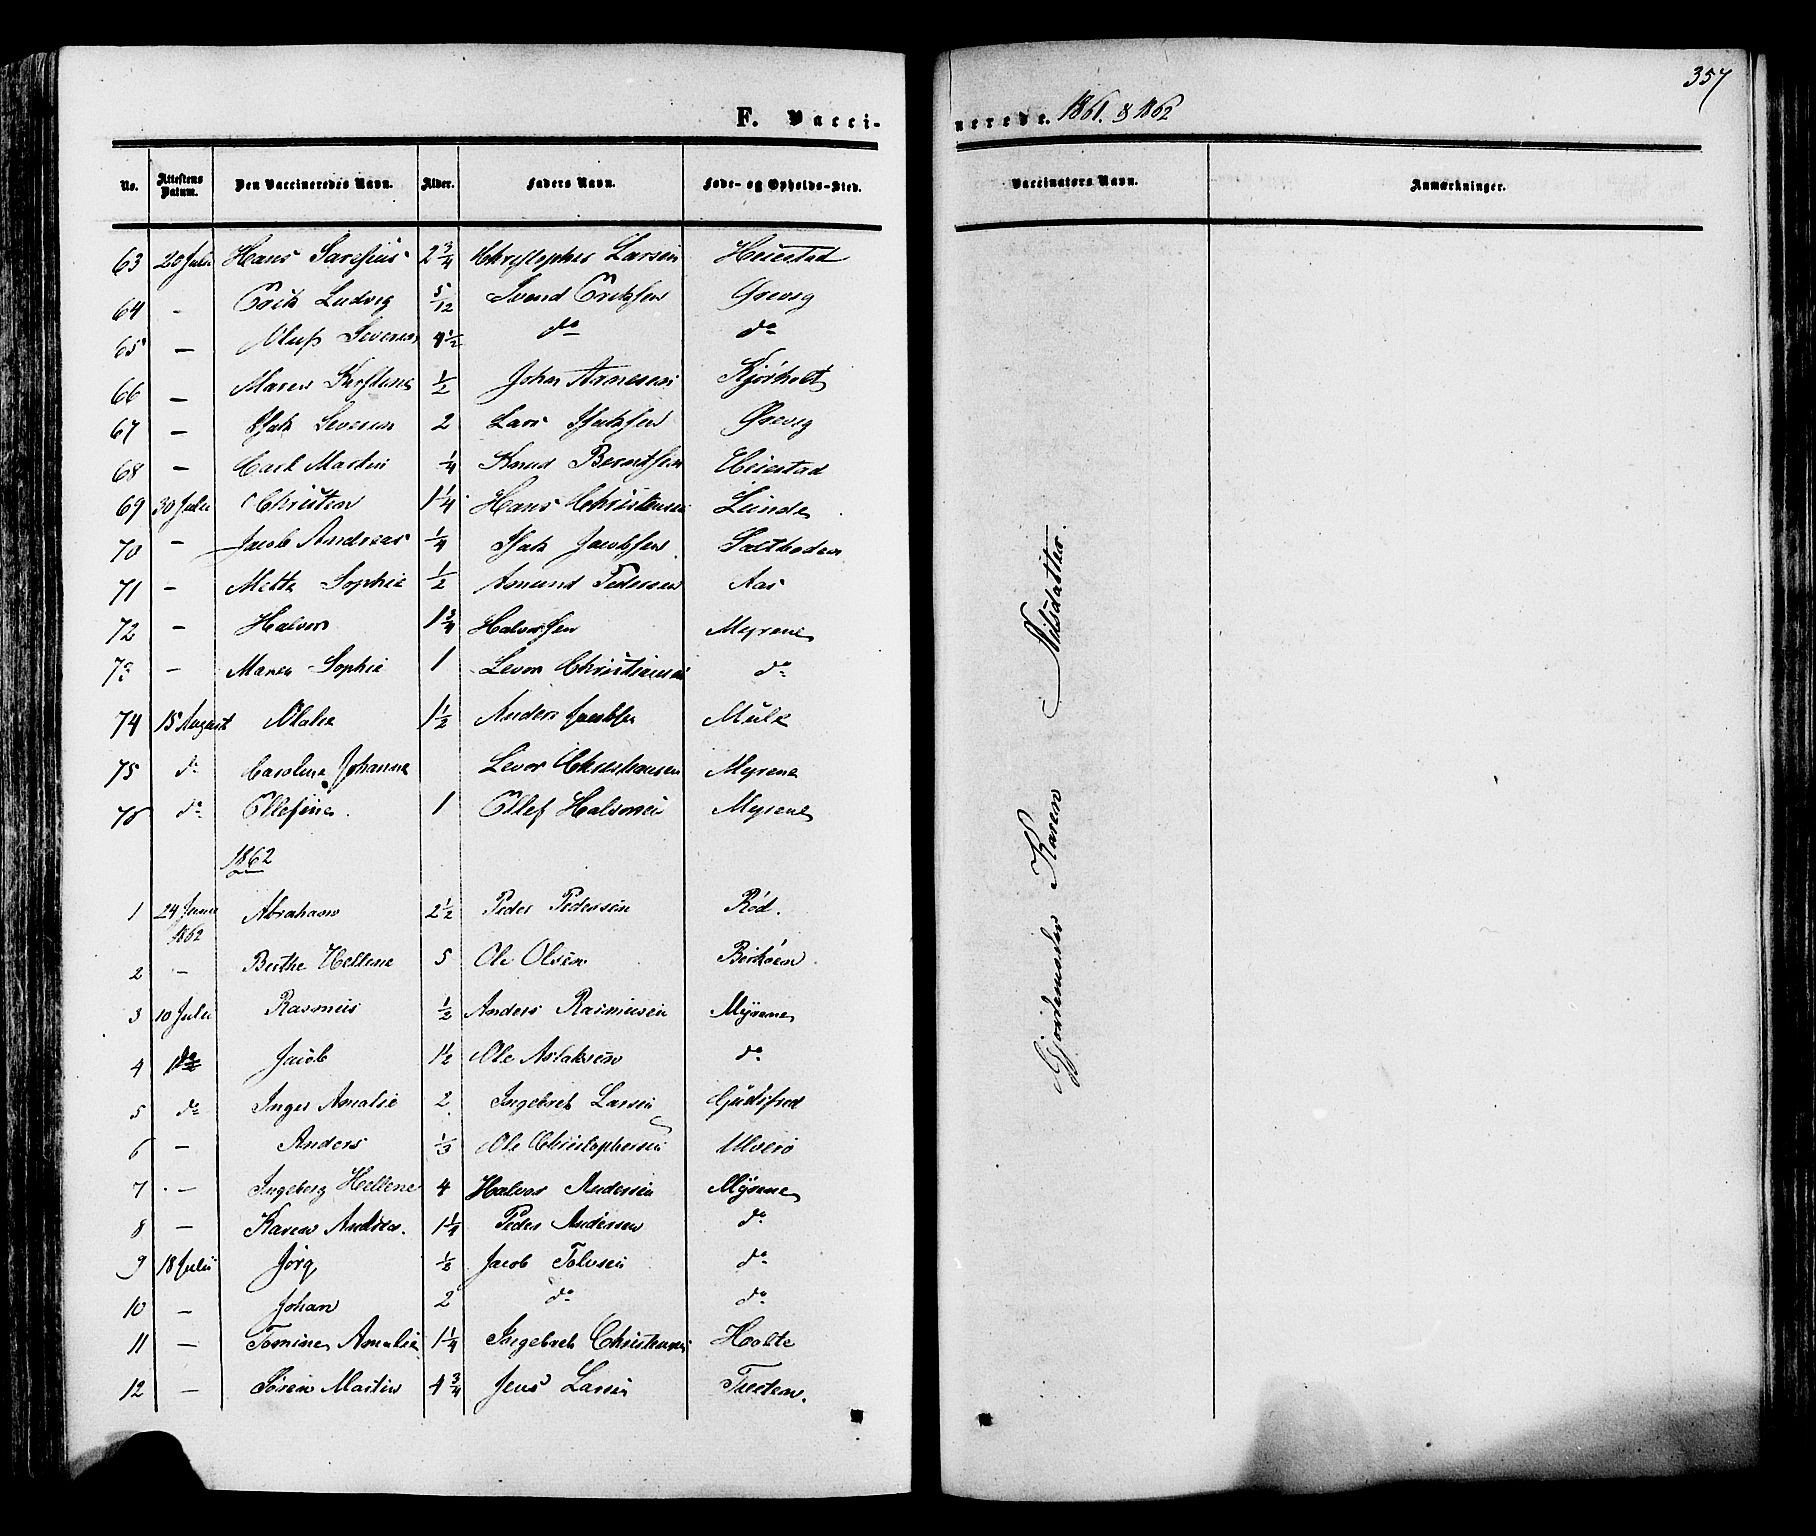 357
F. Vaccinerede. 1861. & 1862
No. Attestens Datum. Den Vaccineredes Navn. Alder. Faders Navn. Føde- og Opholds-Sted. Vaccinators Navn. Anmærkninger.
63 20 Juli Hans Sarefius 2 3/4 Christopher Larsen Heiestad
64 - Erik Ludvig 5/12 Svend Eriksen Ørevig
65 - Oluf Severin 4 1/2 do do
66 - Maren Kirstine 1/2 John Arnesen Kjørholt
67 - Isak Severin 2 Lars Isaksen Ørevig
68 - Carl Martin 1/4 Knud Berntsen Heiestad
69 30 Juli Christen 1 1/4 Hans Christensen Lunde
70 - Jacob Andreas 1/4 Isak Jacobsen Saltboden
71 - Mette Sophie 1/2 Asmund Pedersen Aas
72 - Halvor 1 3/4 Halvorsen Myrene
73 - Maren Sophie 1 Levor Christiansen do
74 15 August Malie 1 1/2 Anders Jacobsen Mule
75 do Caroline Johanne Levor Christiansen Myrene
76 do Ellefine 1 Ellef Halvorsen Myrene
1862
1 24 1862 Abraham 2 1/2 Peder Pedersen Rød.
2 - Berthe Hellene 5 Ole Olsen Berhøen
3 10 Juli Rasmus 1/2 Anders Rasmusen Myrene
4 do Jacob 1 1/2 Ole Aslaksen do
5 do Inger Amalie 2 Ingebret Larsen
6 - Anders 1/3 Ole Christophersen
7 - Ingeborg Hellene 4 Halvor Andersen Myrene
8 - Karen Andrea. 1 1/4 Peder Andersen do
9 18 Juli Jørg 1/2 Jacob Tolvsen do
10 - Johan 2 do do
11 - Tomine Amalie 1 1/4 Ingebret Christensen Holte
12 - Søren Martin 4 3/4 Jens Larsen Treten.
Gjordemoder Karen Nilsdatter.